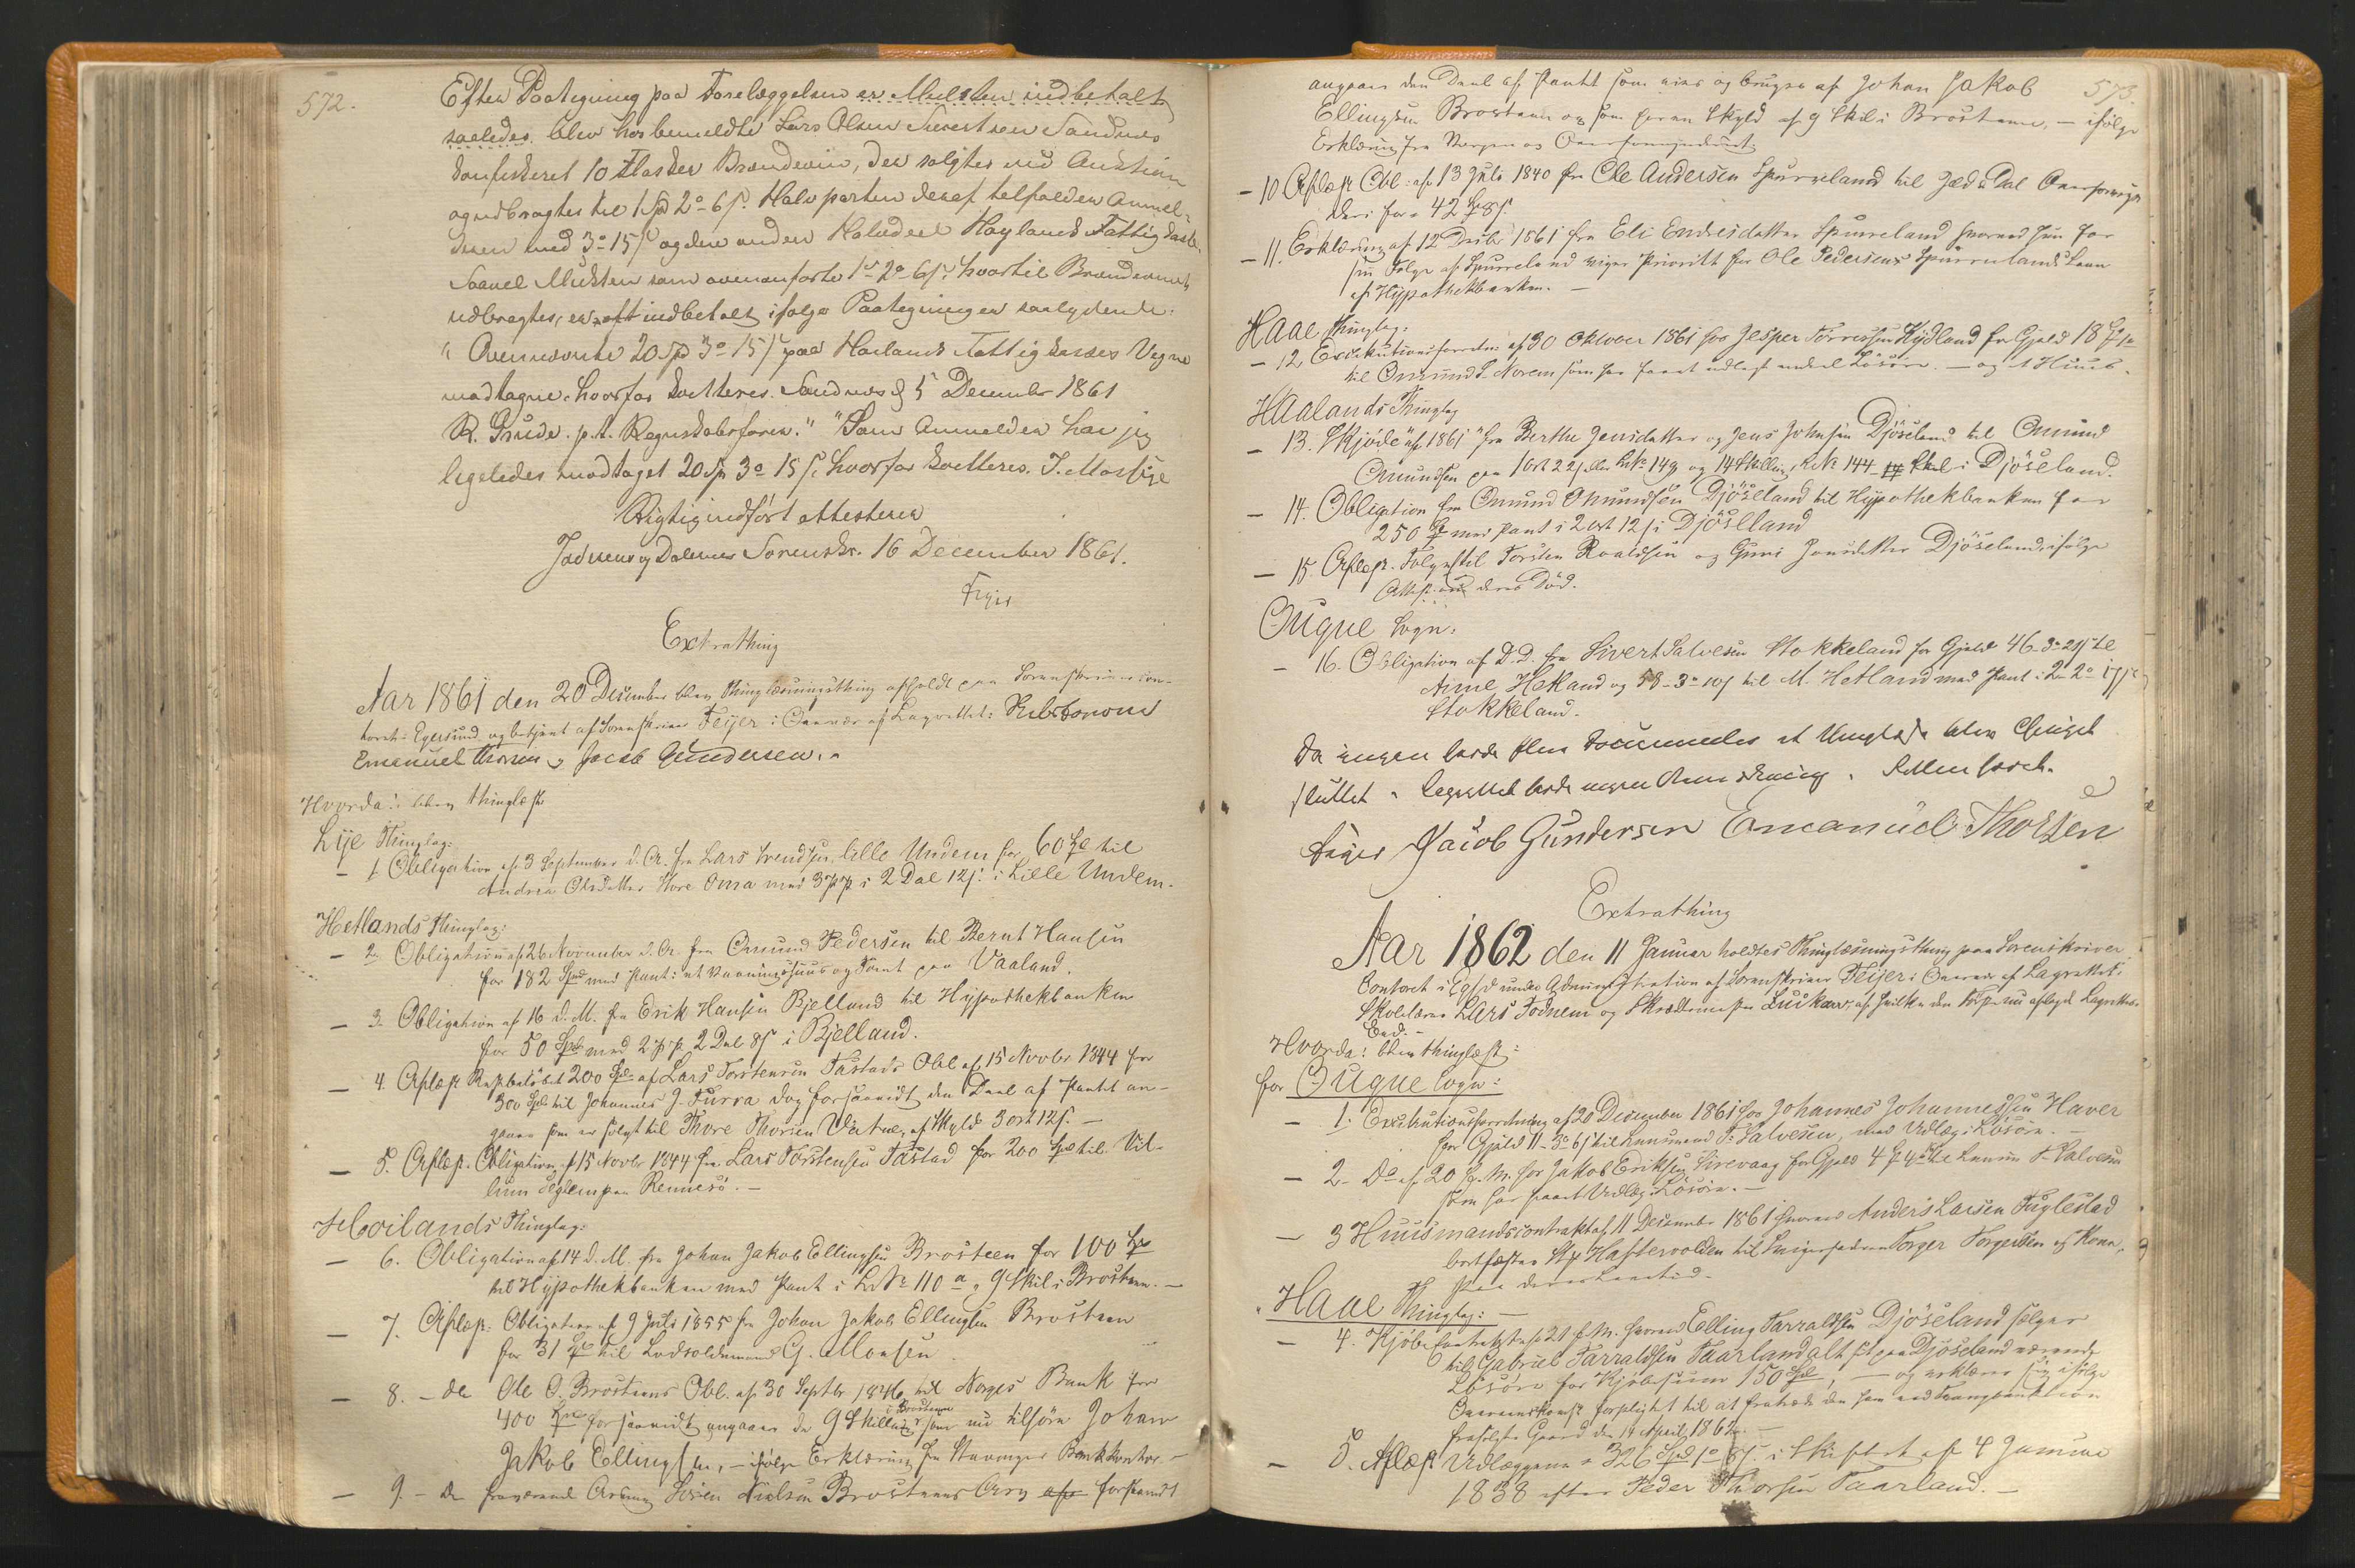 572.
Efter Paategning paa Forelæggelsen er Mulkten indbetalt
saaledes blev hos bemeldte Lars Olsen Sandnes
konfiskeret 10 Flasker Brændeviin, der solgtes ved Auktion
og udbragtes til 1 Spd 2 o- 6 s. Halvparten deraf tilfalder Anmel-
deren med 3 o- 15 s og den anden Halvdeel Høylands Fattigkasse.
Saavel Mulkten som ovenanførte 1 - 2 o- 6 s, hvortil Brændevinet
udbragtes, er indbetalt ifølge Paategninger saalydende:
" Ovennævnte 20 Spd 3 o- 15 s paa Høilands Fattigkasses Vegne
modtagne, hvorfor kvitteres. Sandnæs d 5 December 1861
R. Grude. p.t. Regnskabsfører." "Som Anmelder har jeg
ligeledes modtaget 20 Sp 3 o 15 s, hvorfor kvitteres. J.
Rigtig indført attesterer
Jæderens og Dalernes Sorenskr. 16 December 1861.
Feyer
Extrathing
Aar 1861 den 20 December blev Thinglæsningsthing afholdt paa Sorenskrivercon-
toret i Egersund og betjent af Sorenskriver Feyer i Overvær af Lagrettet:
Emanuel Thorsen og Jacob Gundersen.
Hvorda: blev thinglæst
Lye Thinglag:
- 1 Obligation af 3 September d. A. fra Lars Svendsen lille Undem for 60 Spd til
Andrea Olsdatter Store Oma med 3 p p i 2 Dal 12 s. i Lille Undem.
Hetlands Thinglag:
- 2. Obligation af 26 November d. A. fra Omund Pedersen til Bernt Hansen
for 182 Spd med Pant i et Vaaningshuus og Tomt paa Vaaland.
- 3. Obligation af 16 d. M. fra Erik Hansen Bjelland til Hypothekbanken
for 50 Spd med 2 p p 2 Dal 8 s i Bjelland.
- 4. Aflæst Restbeløbet 200 Spd af Lars Torstensen Tastads Obl af 15 Novbr 1844 for
300 Spd til Johannes J. Furra dog forsaavidt den Deel af Pantet an-
gaar som er solgt til Thore Thorsen Vatne, af Skyld 3 ort 12 s. -
- 5. Aflæst. Obligation af 15 Novbr 1844 fra Lars Torstensen Tastad for 200 Spd til Vil-
lum paa Rennesø. -
Høilands Thinglag:
- 6. Obligation af 14 d. M. fra Johan Jakob Ellingsen Brosteen for 100 Spd
til Hypothekbanken med Pant i LNo 110 a, 9 Skil i Brosteen. -
- 7. Aflæst. Obligation af 9 Juli 1855 fra Johan Jakob Ellingsen Brosteen
for 31 Spd til G. Monsen.
- 8. - do Ole O. Brosteens Obl. af 30 Septbr 1846 til Norges Bank for
400 Spd forsaavidt angaar de 9 Skilling i Brosteen som nu tilhøre Johan
Jakob Ellingsen, - ifølge Erklæring fra Stavanger Bankkontor. -
- 9. - do Søren Nielsen Brosteens Arv forsaavidt
573.
angaar den Deel af Pantet som eies og bruges af Johan Jakob
Ellingsen Brosteen og som har en Skyld af 9 Skil i Brosteen, - ifølge
Erklæring fra Værgen og Overformynderiet.
- 10 Aflæst Obl: af 13 Juli 1840 fra Ole Andersen Spurreland til Jæd & Dal Overformyn-
deri for 42 Sp 8 s.
- 11. Erklæring af 12 Decbr 1861 fra Eli Endresdatter Spurreland hvorved hun for
sin Folge af Spurreland viger Prioritet for Ole Pedersens Spurrelands Laan
af Hypothekbanken. -
Haae Thinglag:
- 12. Executionsforretn. af 30 Oktober 1861 hos Jesper Torresen Kydland for Gjeld 18 Sp 1 o
til Omund S. Norem som har faaet udlagt endeel Løsøre. - og et Huus.
Haalands Thinglag
- 13. Skjøde af 1861 fra Berthe Jensdatter og Jens Johnsen Djøseland til Omund
Omundsen paa 1 ort 22 s eller LNo 149 og 14 Skilling, LNo 144 Skil i Djøseland.
- 14. Obligation fra Omund Omundsen Djøseland til Hypothekbanken for
250 Sp med Pant i 2 ort 12 s i Djøseland
- 15 Aflæst. Folge til Torsten Roaldsen og Guri Jonsdatter Djøseland, ifølge
Attest om deres Død.
Ougne Sogn:
- 16. Obligation af D.D. fra Sivert Salvesen Stokkeland for Gjeld 46 - 3 o- 21 s til
Arne Hetland og 58 - 3 o 10 s til M. Hetland med Pant i 2 - 2 o 17 s
Stokkeland.
Da ingen havde flere Documenter at thinglæse blev Thinget
sluttet. Lagrettet havde ingen Anmærkning.
Feyer Jacob Gundersen Emanuel Thorsen
Extrathing
Aar 1862 den 11 Januar holdtes Thinglæsningsthing paa Sorenskriver
Contoret i Egsd under Administration af Sorenskriver Feyer i Overvær af Lagrettet:
Skolelærer Lars Fodnem og Skræddermester af hvilke den første nu aflagde Lagrettes-
Eed. -
Hvorda: blev thinglæst:
for Ougne Sogn:
- 1. Executionsforretning af 20 December 1861 hos Johannes Johannessen Haver
for Gjeld 11 - 3 o 6 s til Lensmand T. Salvesen, med Udlæg i Løsøre. -
- 2. Do af 20 f. M. hos Jakob Eriksen Sirevaag for Gjeld 4 Sp 4 o til Lensm T. Salvesen
som har faaet Udlæg i Løsøre. -
- 3 Huusmandscontrakt af 11 December 1861 hvorved Anders Larsen Fuglestad
bortfæster Pl. Haftevolden til Torger Torgersen og Kone,
paa deres Levetid.
Haae Thinglag: -
- 4. Kjøbekontrakt af 21 f. M. hvorved Elling Tarraldsen Djøseland sælger
til Gabriel Tarraldsen Taarland alt sit paa Djøseland værende
Løsøre for Kjøbesum 150 Spd, - og erklærer sig ifølge
Overeenskomst forpligtet til at fratræde den ham ved Tvangsauktion
frasolgte Gaard den 14 April 1862. -
- 5. Aflæst Udlæggene 326 Spd 1 o 6 s. i Skiftet af 4 Januar
1838 efter Peder Thorsen Taarland. -